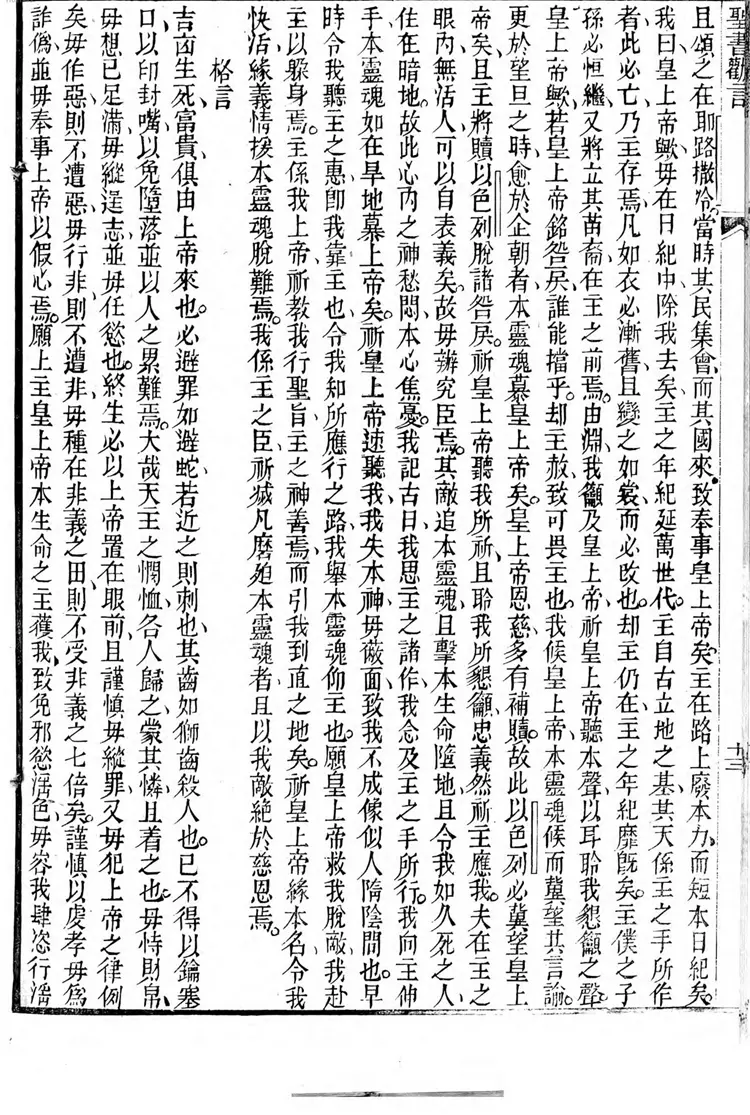 聖書勸言
十三
且頌之在耶路撒冷、當時其民集會、而其國來、致奉事皇上帝矣。主在路上廢本力、而短本日紀矣。
我曰、皇上帝歟、毋在日紀中、除我去矣。主之年紀延萬世代。主自古立地之基、其天係主之手所作
者、此必亡、乃主存焉。凡如衣必漸舊、且變之如裳、而必改也。却主仍在、主之年紀靡旣矣。主僕之子
孫必恒繼、又將立其苗裔、在主之前焉。由淵、我籲及皇上帝、祈皇上帝聽本聲、以耳聆我懇籲之聲。
皇上帝歟、若皇上帝銘咎戾、誰能擋乎。却主赦致可畏主也。我候皇上帝、本靈魂候、而冀望其言論。
更於望旦之時、愈於企朝者、本靈魂慕皇上帝矣。皇上帝恩慈多有補贖。故此以色列必冀望皇上
帝矣。且主將贖以色列脫諸咎戾。祈皇上帝聽我所祈、且聆我所懇籲、忠義然祈主應我。夫在主之
眼內、無活人可以自表義矣。故毋辨究臣焉。其敵追本靈魂、且擊本生命墮地、且令我如久死之人
住在暗地。故此心內之神愁悶、本心焦憂。我記古日、我思主之諸作、我念及主之手所行。我向主伸
手、本靈魂如在旱地慕上帝矣。祈皇上帝速聽我、我失本神、毋蔽面、致我不成像似人隋陰間也。早
時令我聽主之惠、卽我靠主也。令我知所應行之路、我舉本靈魂仰主也。願皇上帝救我脫敵、我赴
主以躱身焉。主係我上帝、祈教我行聖旨、主之神善焉、而引我到直之地矣。祈皇上帝緣本名令我
快活、緣義情援本靈魂脫難焉。我係主之臣、祈滅凡磨廹本靈魂者、且以我敵絕於慈恩焉。
格言
吉凶生死富貴、俱由上帝來也。必避罪如避蛇、若近之則刺也、其齒如獅齒殺人也。已不得以鑰塞
口、以印封嘴、以免墮落、並以人之累難焉。大哉天主之憫恤、各人歸之、蒙其憐且着之也。毋恃財帛、
毋想已足滿、毋縱逞志、並毋任慾也。終生必以上帝置在眼前、且謹慎毋縱罪、又毋犯上帝之律例
矣。毋作惡、則不遭惡、毋行非、則不遭非、毋種在非義之田、則不受非義之七倍矣。謹慎以虔孝毋爲
詐僞、並毋奉事上帝以假心焉。願上主皇上帝本生命之主獲我、致免邪慾淫色、毋容我肆恣行淫